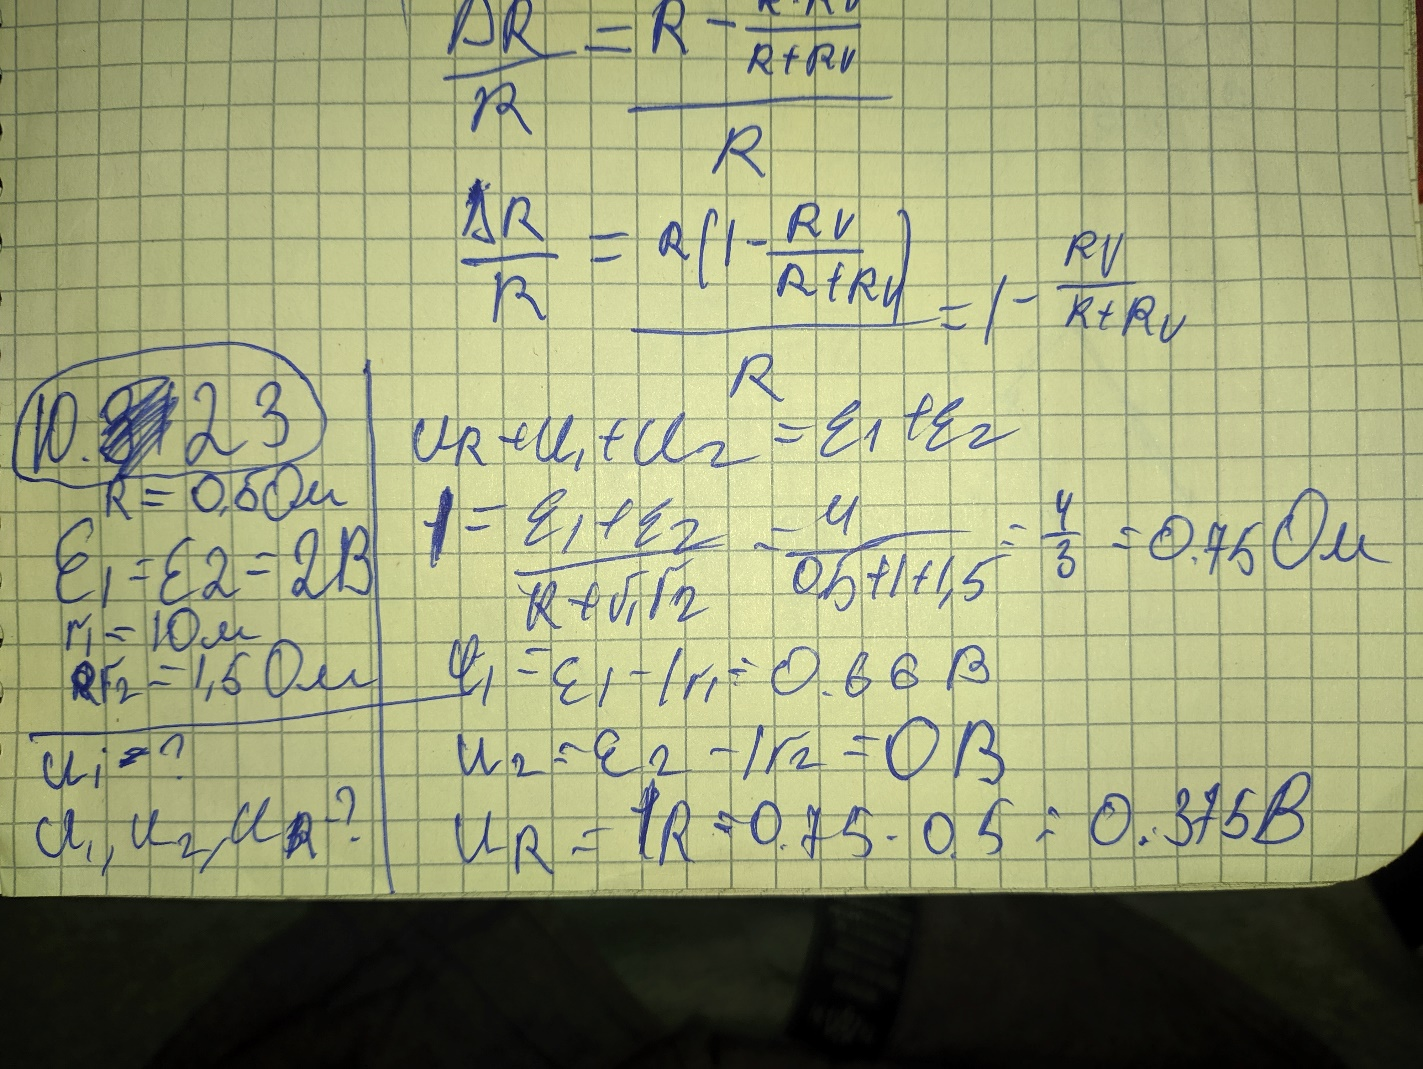 ΔR/R = (R - R·Rv/(R+Rv))/R
ΔR/R = R(1 - RV/(R+RV))/R = 1 - RV/(R+Rv)
10.23
R = 0,5 Ом
ε1 = ε2 = 2В
r1 = 1Ом
r2 = 1,5 Ом
u1 = ?
u1, u2, uR - ?
uR + u1 + u2 = ε1 + ε2
I = (ε1 + ε2)/(R + r1 r2) = 4/(0,5+1+1,5) = 4/3 = 0.75 Ом
φ1 = ε1 - Ir1 = 0.66 В
u2 = ε2 - Ir2 = 0 В
uR = IR = 0.75 · 0.5 = 0.375В